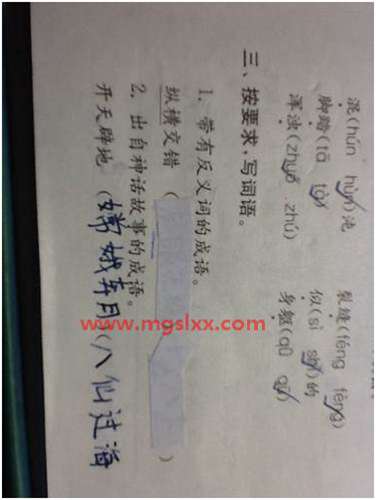 混(hún hùn)沌 裂缝(féng fèng)
脚踏(tā tà) 似(sì shì)的
浑浊(zhuó zhú) 身躯(qū
三、按要求,写词语。
1. 带有反义词的成语。
纵横交错 ( )
2. 出自神话故事的成语。
开天辟地 (嫦娥奔月(八仙过海
www.mgslxx.com